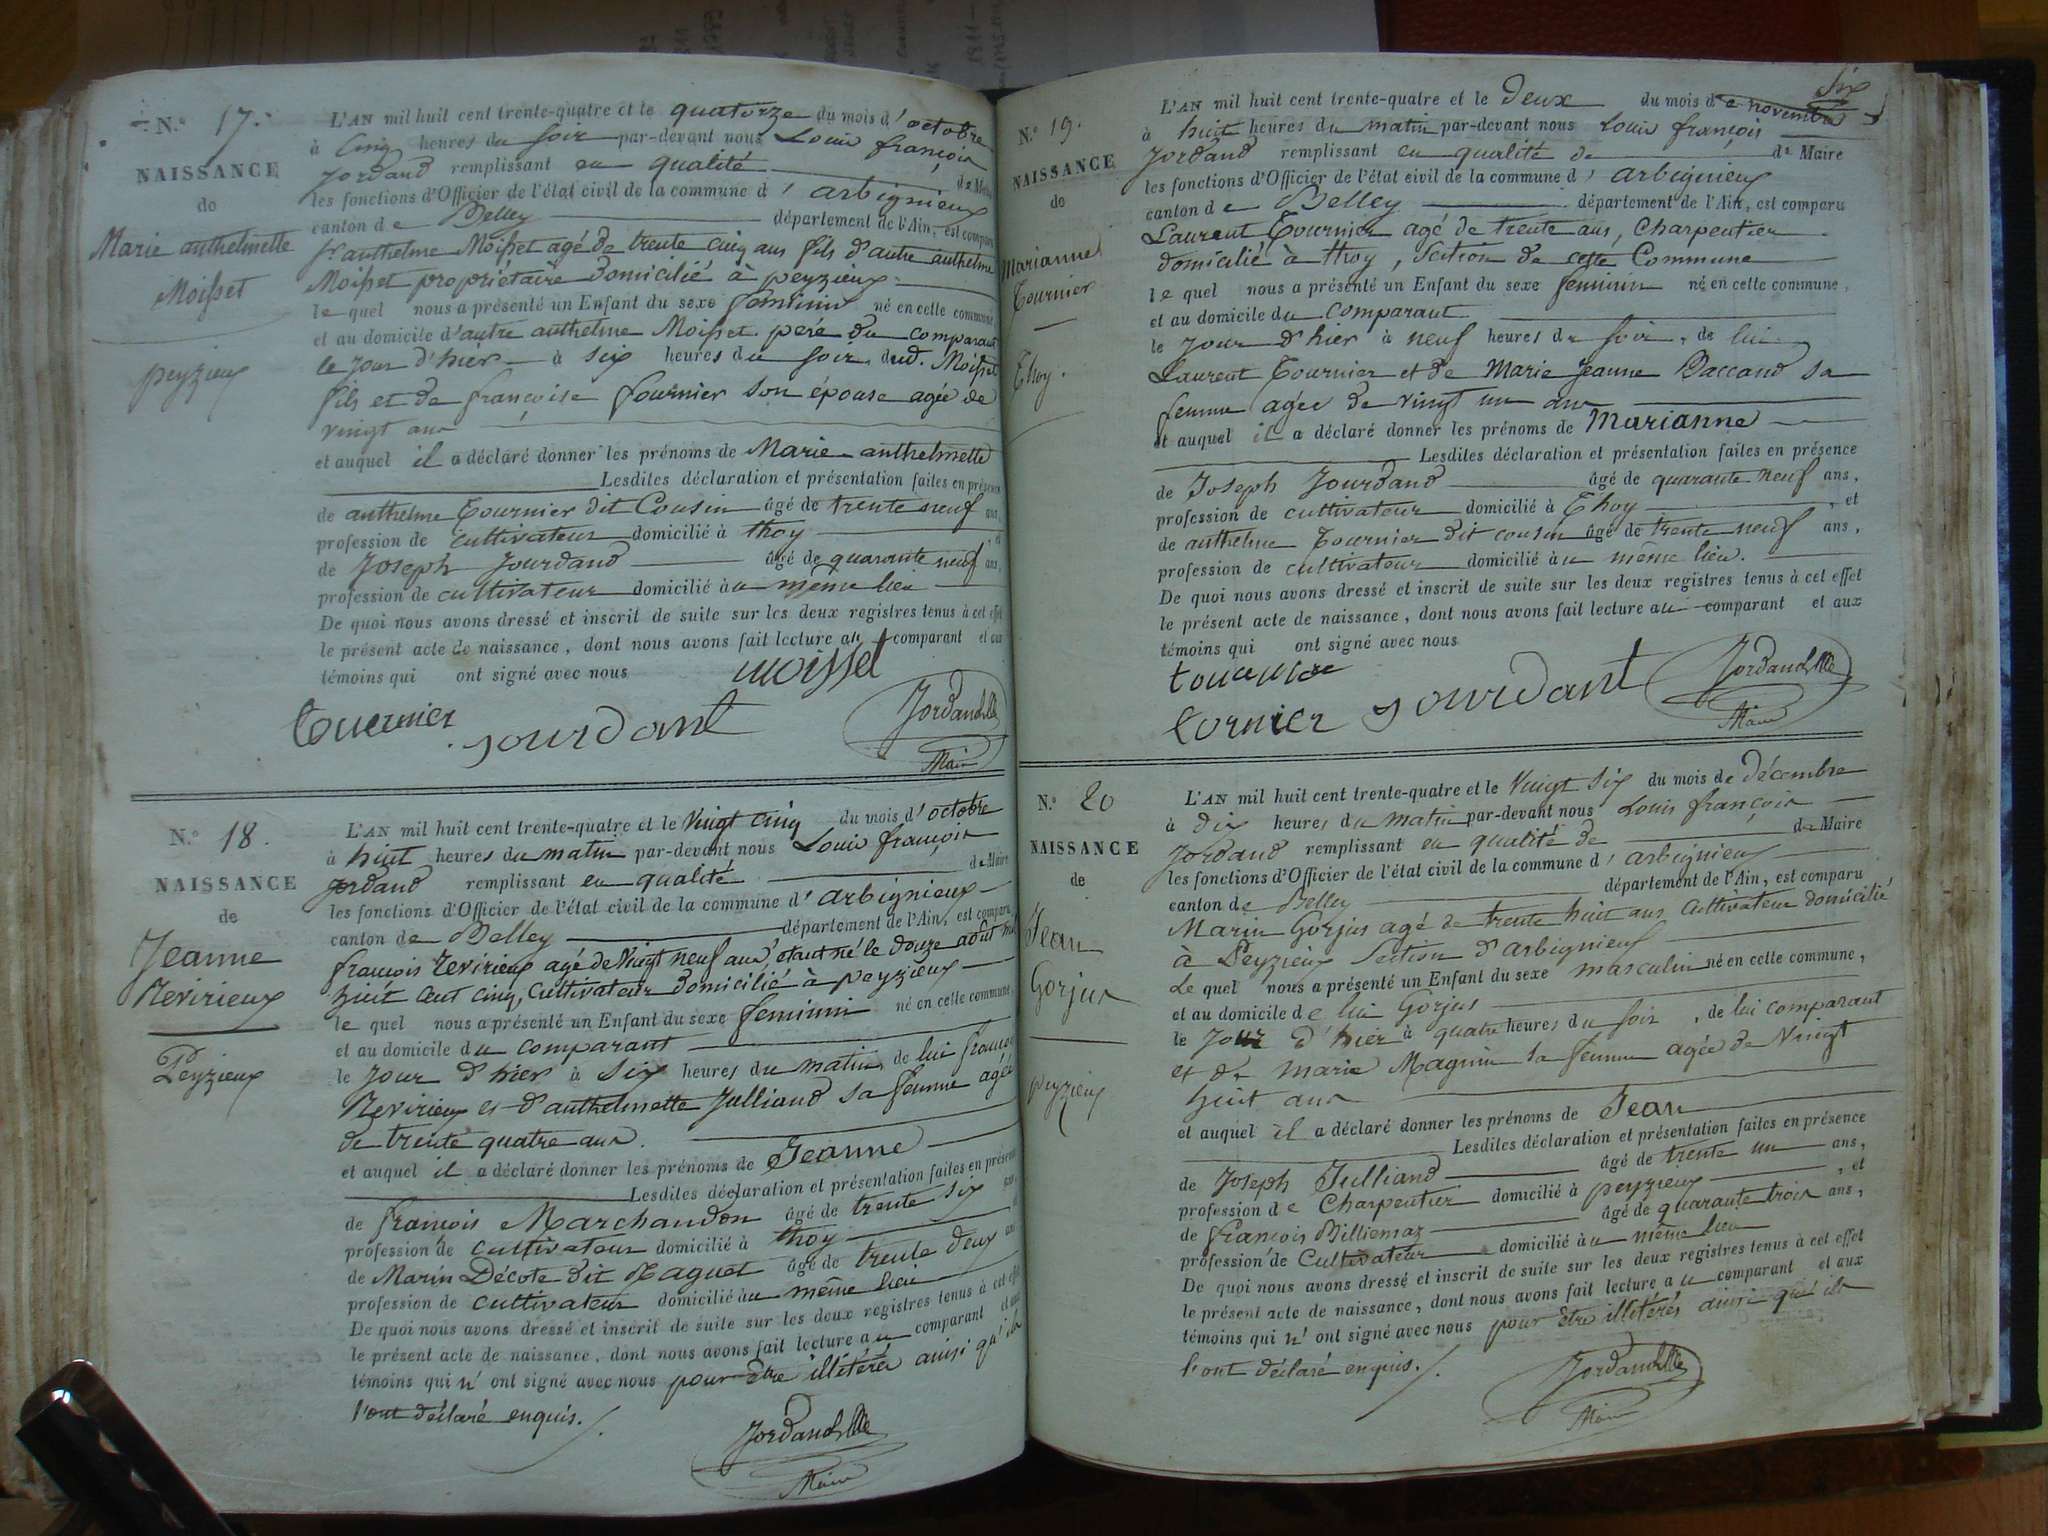 N.º 17.
NAISSANCE
de
Marie anthelmette
Moisset
peyzieux
L'AN mil huit cent trente-quatre et le quatorze du mois d'octobre
à Cinq heures du soir par-devant nous Louis françois
Jordand remplissant en qualité de Maire
les fonctions d'Officier de l'état civil de la commune d'arbignieux
canton de Belley département de l'Ain, est comparu
Sr. anthelme Moisset agé de trente cinq ans fils d'autre anthelme
Moisset propriétaire domicilié à peyzieux
le quel nous a présenté un Enfant du sexe feminin né en cette commune,
et au domicile d'autre anthelme Moisset père du comparant
le jour d'hier à six heures du soir, dud. Moisset
fils et de françoise fournier son épouse agée de
vingt ans
et auquel il a déclaré donner les prénoms de Marie anthelmette
Lesdites déclaration et présentation faites en présence
de anthelme Tournier dit Cousin âgé de trente neuf ans,
profession de cultivateur domicilié à thoy, et
de Joseph Jourdand âgé de quarante neuf ans,
profession de cultivateur domicilié au même lieu
De quoi nous avons dressé et inscrit de suite sur les deux registres tenus à cet effet
le présent acte de naissance, dont nous avons fait lecture au comparant et aux
témoins qui ont signé avec nous
moisset
tournier
jourdant
Jordand
Maire
N.º 18.
NAISSANCE
de
Jeanne
Revirieux
Peyzieux
L'AN mil huit cent trente-quatre et le vingt cinq du mois d'octobre
à huit heures du matin par-devant nous Louis françois
Jordand remplissant en qualité de Maire
les fonctions d'Officier de l'état civil de la commune d'arbignieux
canton de Belley département de l'Ain, est comparu
françois Revirieux agé de vingt neuf ans, étant né le douze août mil
huit cent cinq, Cultivateur domicilié à peyzieux
le quel nous a présenté un Enfant du sexe feminin né en cette commune
et au domicile du comparant
le jour d'hier à six heures du matin, de lui françois
Revirieux et d'anthelmette Julliand sa femme agée
de trente quatre ans.
et auquel il a déclaré donner les prénoms de Jeanne
Lesdites déclaration et présentation faites en présence
de françois Marchandon âgé de trente six ans
profession de cultivateur domicilié à thoy
de Marin Décote dit Raguet âgé de trente deux ans
profession de cultivateur domicilié au même lieu
De quoi nous avons dressé et inscrit de suite sur les deux registres tenus à cet effet
le présent acte de naissance, dont nous avons fait lecture au comparant et aux
témoins qui n'ont signé avec nous pour être illitérés ainsi qu'ils
l'ont déclaré enquis.
Jordand
Maire
six
N.º 19.
NAISSANCE
de
Marianne
Tournier
Thoy.
L'AN mil huit cent trente-quatre et le deux du mois de novembre
à huit heures du matin par-devant nous Louis françois
Jordand remplissant en qualité de de Maire
les fonctions d'Officier de l'état civil de la commune d'arbignieux
canton de Belley département de l'Ain, est comparu
Laurent Tournier agé de trente ans, Charpentier
domicilié à thoy, Section de cette Commune
le quel nous a présenté un Enfant du sexe feminin né en cette commune,
et au domicile du comparant
le jour d'hier à neuf heures du soir, de lui
Laurent Tournier et de Marie Jeanne Baccand sa
femme agée de vingt un ans
et auquel il a déclaré donner les prénoms de Marianne
Lesdites déclaration et présentation faites en présence
de Joseph Jourdand âgé de quarante neuf ans,
profession de cultivateur domicilié à Thoy, et
de anthelme Tournier dit cousin âgé de trente neuf ans,
profession de cultivateur domicilié au même lieu.
De quoi nous avons dressé et inscrit de suite sur les deux registres tenus à cet effet
le présent acte de naissance, dont nous avons fait lecture au comparant et aux
témoins qui ont signé avec nous
tornier
jourdant
Jordand
Maire
N.º 20
NAISSANCE
de
Jean
Gorjus
peyzieux
L'AN mil huit cent trente-quatre et le vingt six du mois de décembre
à dix heures du matin par-devant nous Louis françois
Jordand remplissant en qualité de de Maire
les fonctions d'Officier de l'état civil de la commune d'arbignieux
canton de Belley département de l'Ain, est comparu
Marin Gorjus agé de trente huit ans Cultivateur domicilié
à Peyzieux Section d'arbignieux
Le quel nous a présenté un Enfant du sexe masculin né en cette commune,
et au domicile de lui Gorjus
le jour d'hier à quatre heures du soir, de lui comparant
et de marie Magnin sa femme agée de vingt
huit ans
et auquel il a déclaré donner les prénoms de Jean
Lesdites déclaration et présentation faites en présence
de Joseph Julliand âgé de trente un ans,
profession de Charpentier domicilié à peyzieux, et
de françois Billiemaz âgé de quarante trois ans,
profession de Cultivateur domicilié au même lieu
De quoi nous avons dressé et inscrit de suite sur les deux registres tenus à cet effet
le présent acte de naissance, dont nous avons fait lecture au comparant et aux
témoins qui n'ont signé avec nous pour être illitérés ainsi qu'ils
l'ont déclaré enquis.
Jordand
Maire